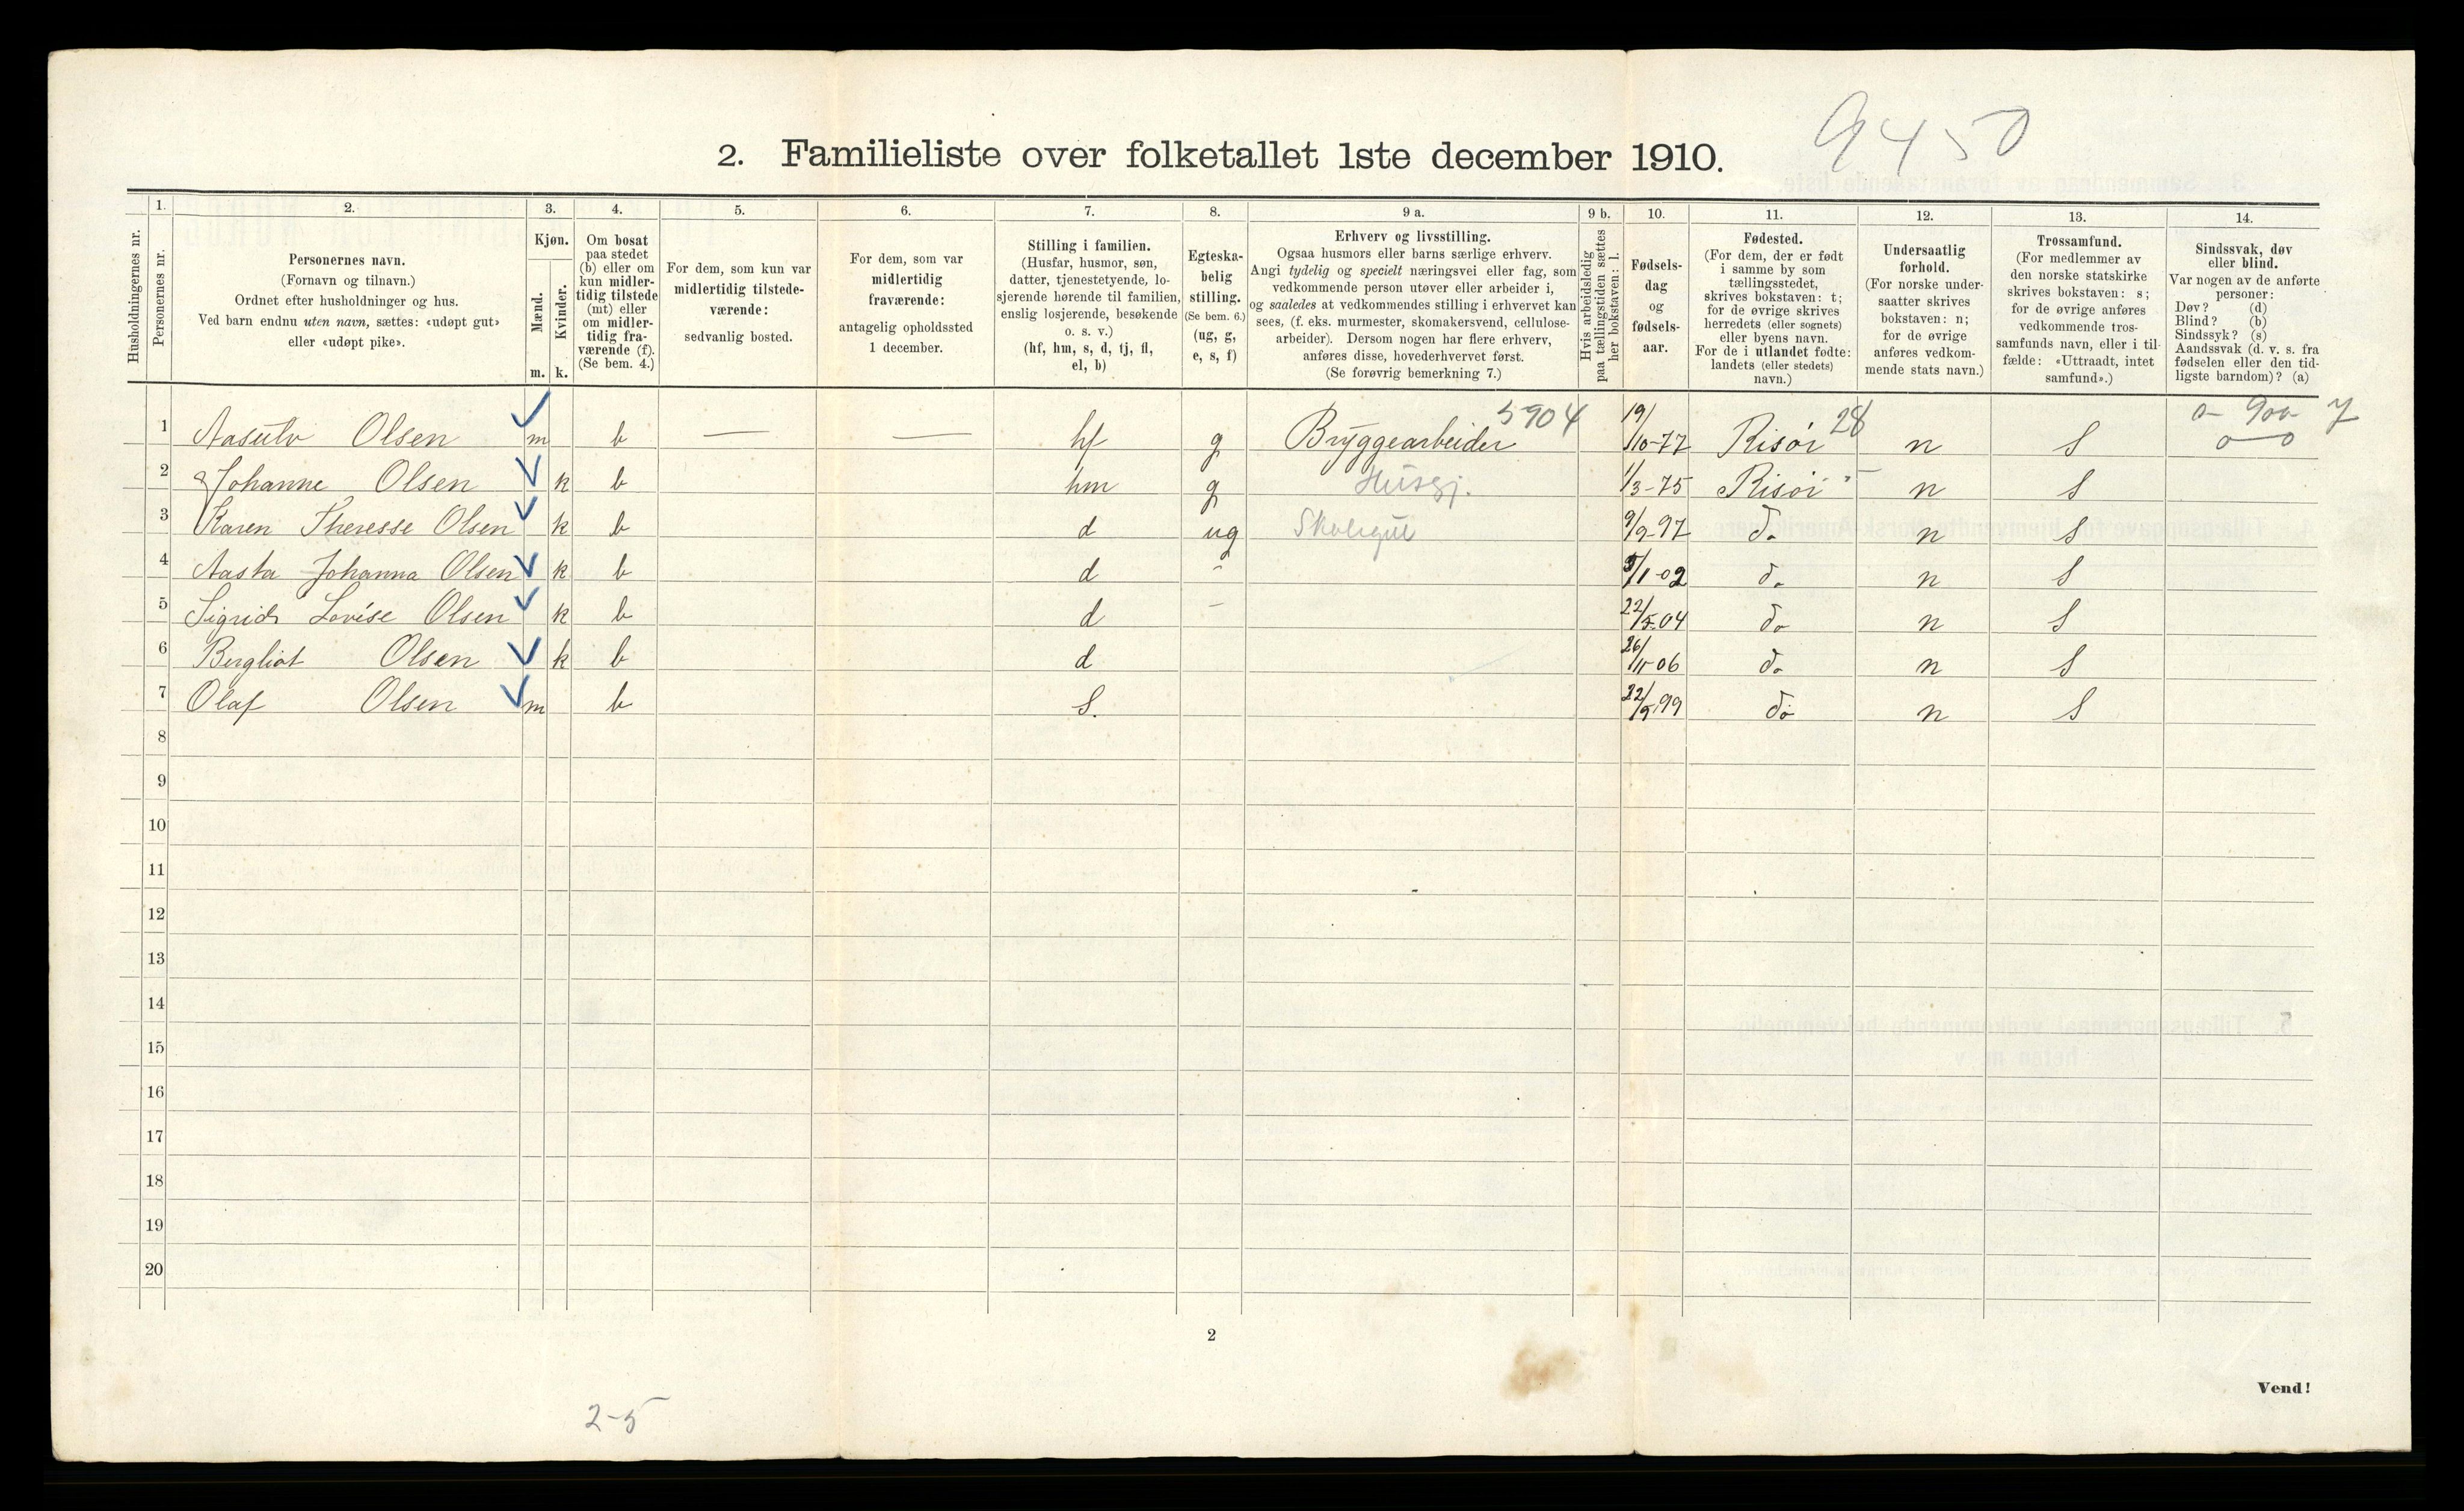 9450
2. Familieliste over folketallet 1ste december 1910.
Husholdningernes nr.
1.
Personernes nr.
2.
Personernes navn.
(Fornavn og tilnavn.)
Ordnet efter husholdninger og hus.
Ved barn endnu uten navn, sættes: «udøpt gut»
eller «udøpt pike».
3.
Kjøn.
Mænd.
Kvinder.
m. k.
4.
Om bosat
paa stedet
(b) eller om
kun midler-
tidig tilstede
(mt) eller
om midler-
tidig fra-
værende (f).
(Se bem. 4.)
5.
For dem, som kun var
midlertidig tilstede-
værende:
sedvanlig bosted.
6.
For dem, som var
midlertidig
fraværende:
antagelig opholdssted
1 december.
7.
Stilling i familien.
(Husfar, husmor, søn,
datter, tjenestetyende, lo-
sjerende hørende til familien,
enslig losjerende, besøkende
o. s. v.)
(hf, hm, s, d, tj, fl,
el, b)
8.
Egteska-
belig
stilling.
(Se bem. 6.)
(ug, g,
e, s, f)
9 a.
Erhverv og livsstilling.
Ogsaa husmors eller barns særlige erhverv.
Angi tydelig og specielt næringsvei eller fag, som
vedkommende person utøver eller arbeider i,
og saaledes at vedkommendes stilling i erhvervet kan
sees, (f. eks. murmester, skomakersvend, cellulose-
arbeider). Dersom nogen har flere erhverv,
anføres disse, hovederhvervet først.
(Se forøvrig bemerkning 7.)
9 b.
Hvis arbeidsledig
paa tællingstiden sættes
her bokstaven: l.
10.
Fødsels-
dag
og
fødsels-
aar.
11.
Fødested.
(For dem, der er født
i samme by som
tællingsstedet,
skrives bokstaven: t;
for de øvrige skrives
herredets (eller sognets)
eller byens navn.
For de i utlandet fødte:
landets (eller stedets)
navn.)
12.
Undersaatlig
forhold.
(For norske under-
saatter skrives
bokstaven: n;
for de øvrige
anføres vedkom-
mende stats navn.)
13.
Trossamfund.
(For medlemmer av
den norske statskirke
skrives bokstaven: s;
for de øvrige anføres
vedkommende tros-
samfunds navn, eller i til-
fælde: «Uttraadt, intet
samfund».)
14.
Sindssvak, døv
eller blind.
Var nogen av de anførte
personer:
Døv? (d)
Blind? (b)
Sindssyk? (s)
Aandssvak (d. v. s. fra
fødselen eller den tid-
ligste barndom)? (a)
1 Aasulv Olsen m b — — hf g Bryggearbeider 5904 19/10-77 Risør 28 n s
2 Johanne Olsen k b hm g Husgj. 1/3-75 Risør n s
3 Karen Theresse Olsen k b d ug 9/9-97 do n s
4 Aasta Johanna Olsen k b d 02 do n s
5 Sigrid Lovise Olsen k b d - 22/5-04 do n s
6 Bergliot Olsen k b d 26/11-06 do n s
7 Olaf Olsen m b s. 99 do n s
8
9
10
11
12
13
14
15
16
17
18
19
20
2
Vend!
2-5